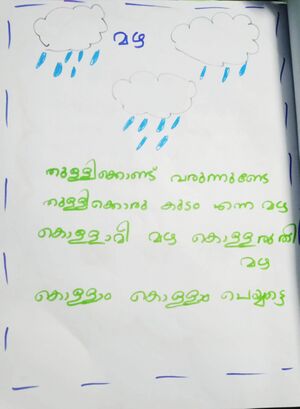 മഴ
തുള്ളിക്കൊണ്ട് വരുന്നുണ്ടേ
തുള്ളിക്കൊരു കുടം എന്ന മഴ
കൊള്ളാമീ മഴ കൊള്ളരുതീ
മഴ
കൊള്ളാം കൊള്ളാം പെയ്യട്ടെ